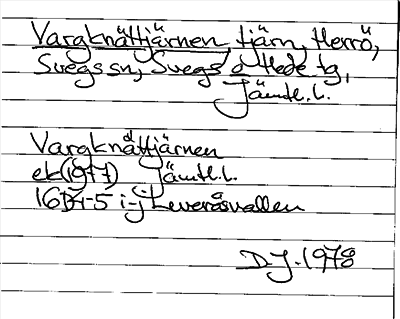 Vargknättjärnen, tjärn, Herrö,
Svegs sn, Svegs o Hede tg,
Jämtl. l.
Vargknättjärnen
ek (1977) Jämtl. l.
i-j Leveråsvallen
D.J. 1978